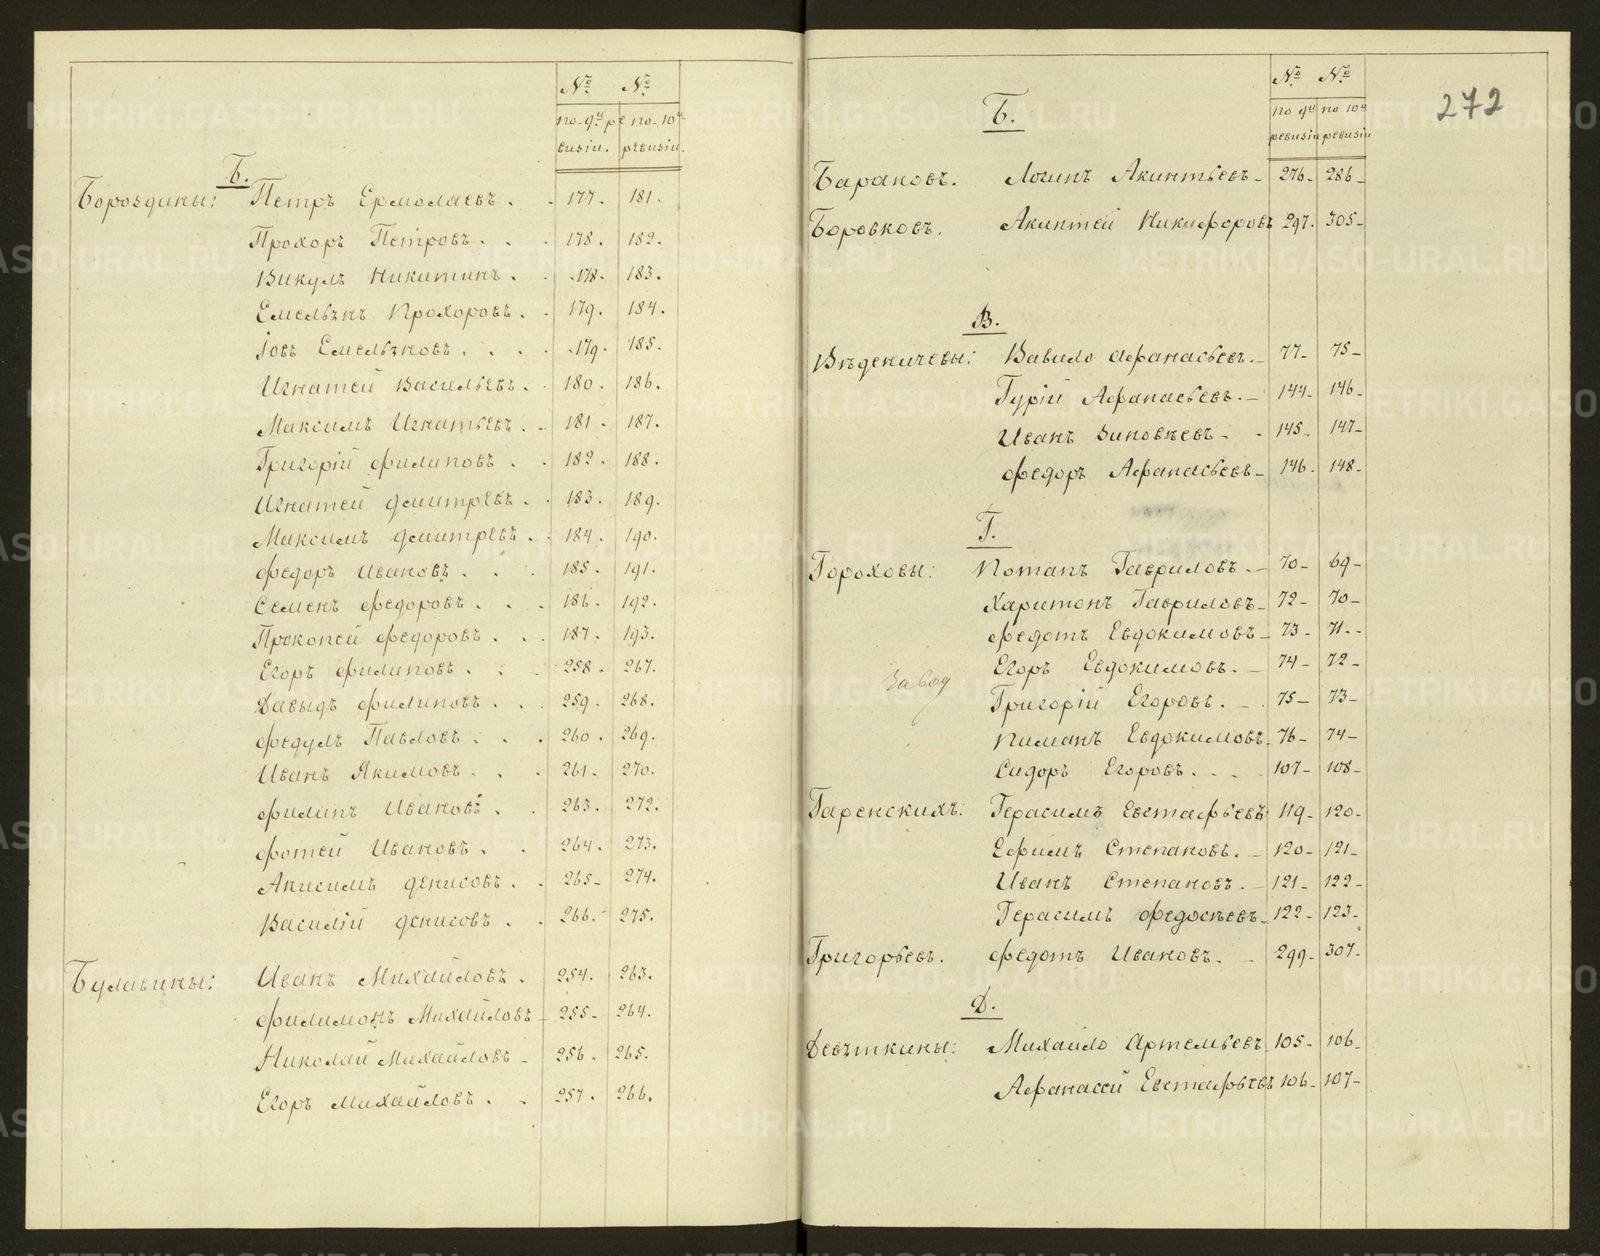 № №
по 9й ре по 10й
визіи. ревизіи.
Б.
Бороздины: Петръ Ермолаевъ. 177. 181.
Прохоръ Петровъ. 178. 182.
Викулъ Никитинъ. 178. 183.
Емельянъ Прохоровъ. 179. 184.
Іовъ Емельяновъ. 179. 185.
Игнатей Васильевъ. 180. 186.
Максимъ Игнатьевъ. 181. 187.
Григорій Филиповъ. 182. 188.
Игнатей Дмитревъ. 183. 189.
Максимъ Дмитревъ. 184. 190.
Федоръ Ивановъ. 185. 191.
Семенъ Федоровъ. 186. 192.
Прокопей Федоровъ. 187. 193.
Егоръ Филиповъ. 258. 267.
Давыдъ Филиповъ. 259. 268.
Федулъ Павловъ. 260. 269.
Иванъ Якимовъ. 261. 270.
Филипъ Ивановъ. 263. 272.
Фотей Ивановъ. 264. 273.
Анисимъ Денисовъ. 265. 274.
Василій Денисовъ. 266. 275.
Булавины: Иванъ Михайловъ. 254. 263.
Филимонъ Михайловъ 255. 264.
Николай Михайловъ 256. 265.
Егоръ Михайловъ. 257. 266.
272
№ №
по 9й по 10й
ревизіи ревизіи
Б.
Барановъ. Логинъ Акинтьевъ 276. 286
Боровковъ. Акинтей Никифоровъ 297. 305
В.
Вѣденичевы: Вавило Афанасьевъ. 77 75
Гурій Афанасьевъ. 144 146
Иванъ Зиновѣевъ 145 147
Федоръ Афанасьевъ 146 148
Г.
Гороховы: Потапъ Гавриловъ. 70 69
Харитонъ Гавриловъ 72 70
Федотъ Евдокимовъ 73 71
Завод Егоръ Евдокимовъ. 74 72
Григорій Егоровъ. 75 73
Пиманъ Евдокимовъ 76 74
Сидоръ Егоровъ. 107 108
Гаренскихъ: Герасимъ Евстафьевъ 119 120
Ефимъ Степановъ. 120 121
Иванъ Степановъ. 121 122
Герасимъ Федосѣевъ 122 123
Григорьевъ. Федотъ Ивановъ. 299 307
Д.
Девяткины: Михайло Артемьевъ 105 106
Афанасей Евстафьевъ 106 107
METRIKI.GASO-URAL.RU